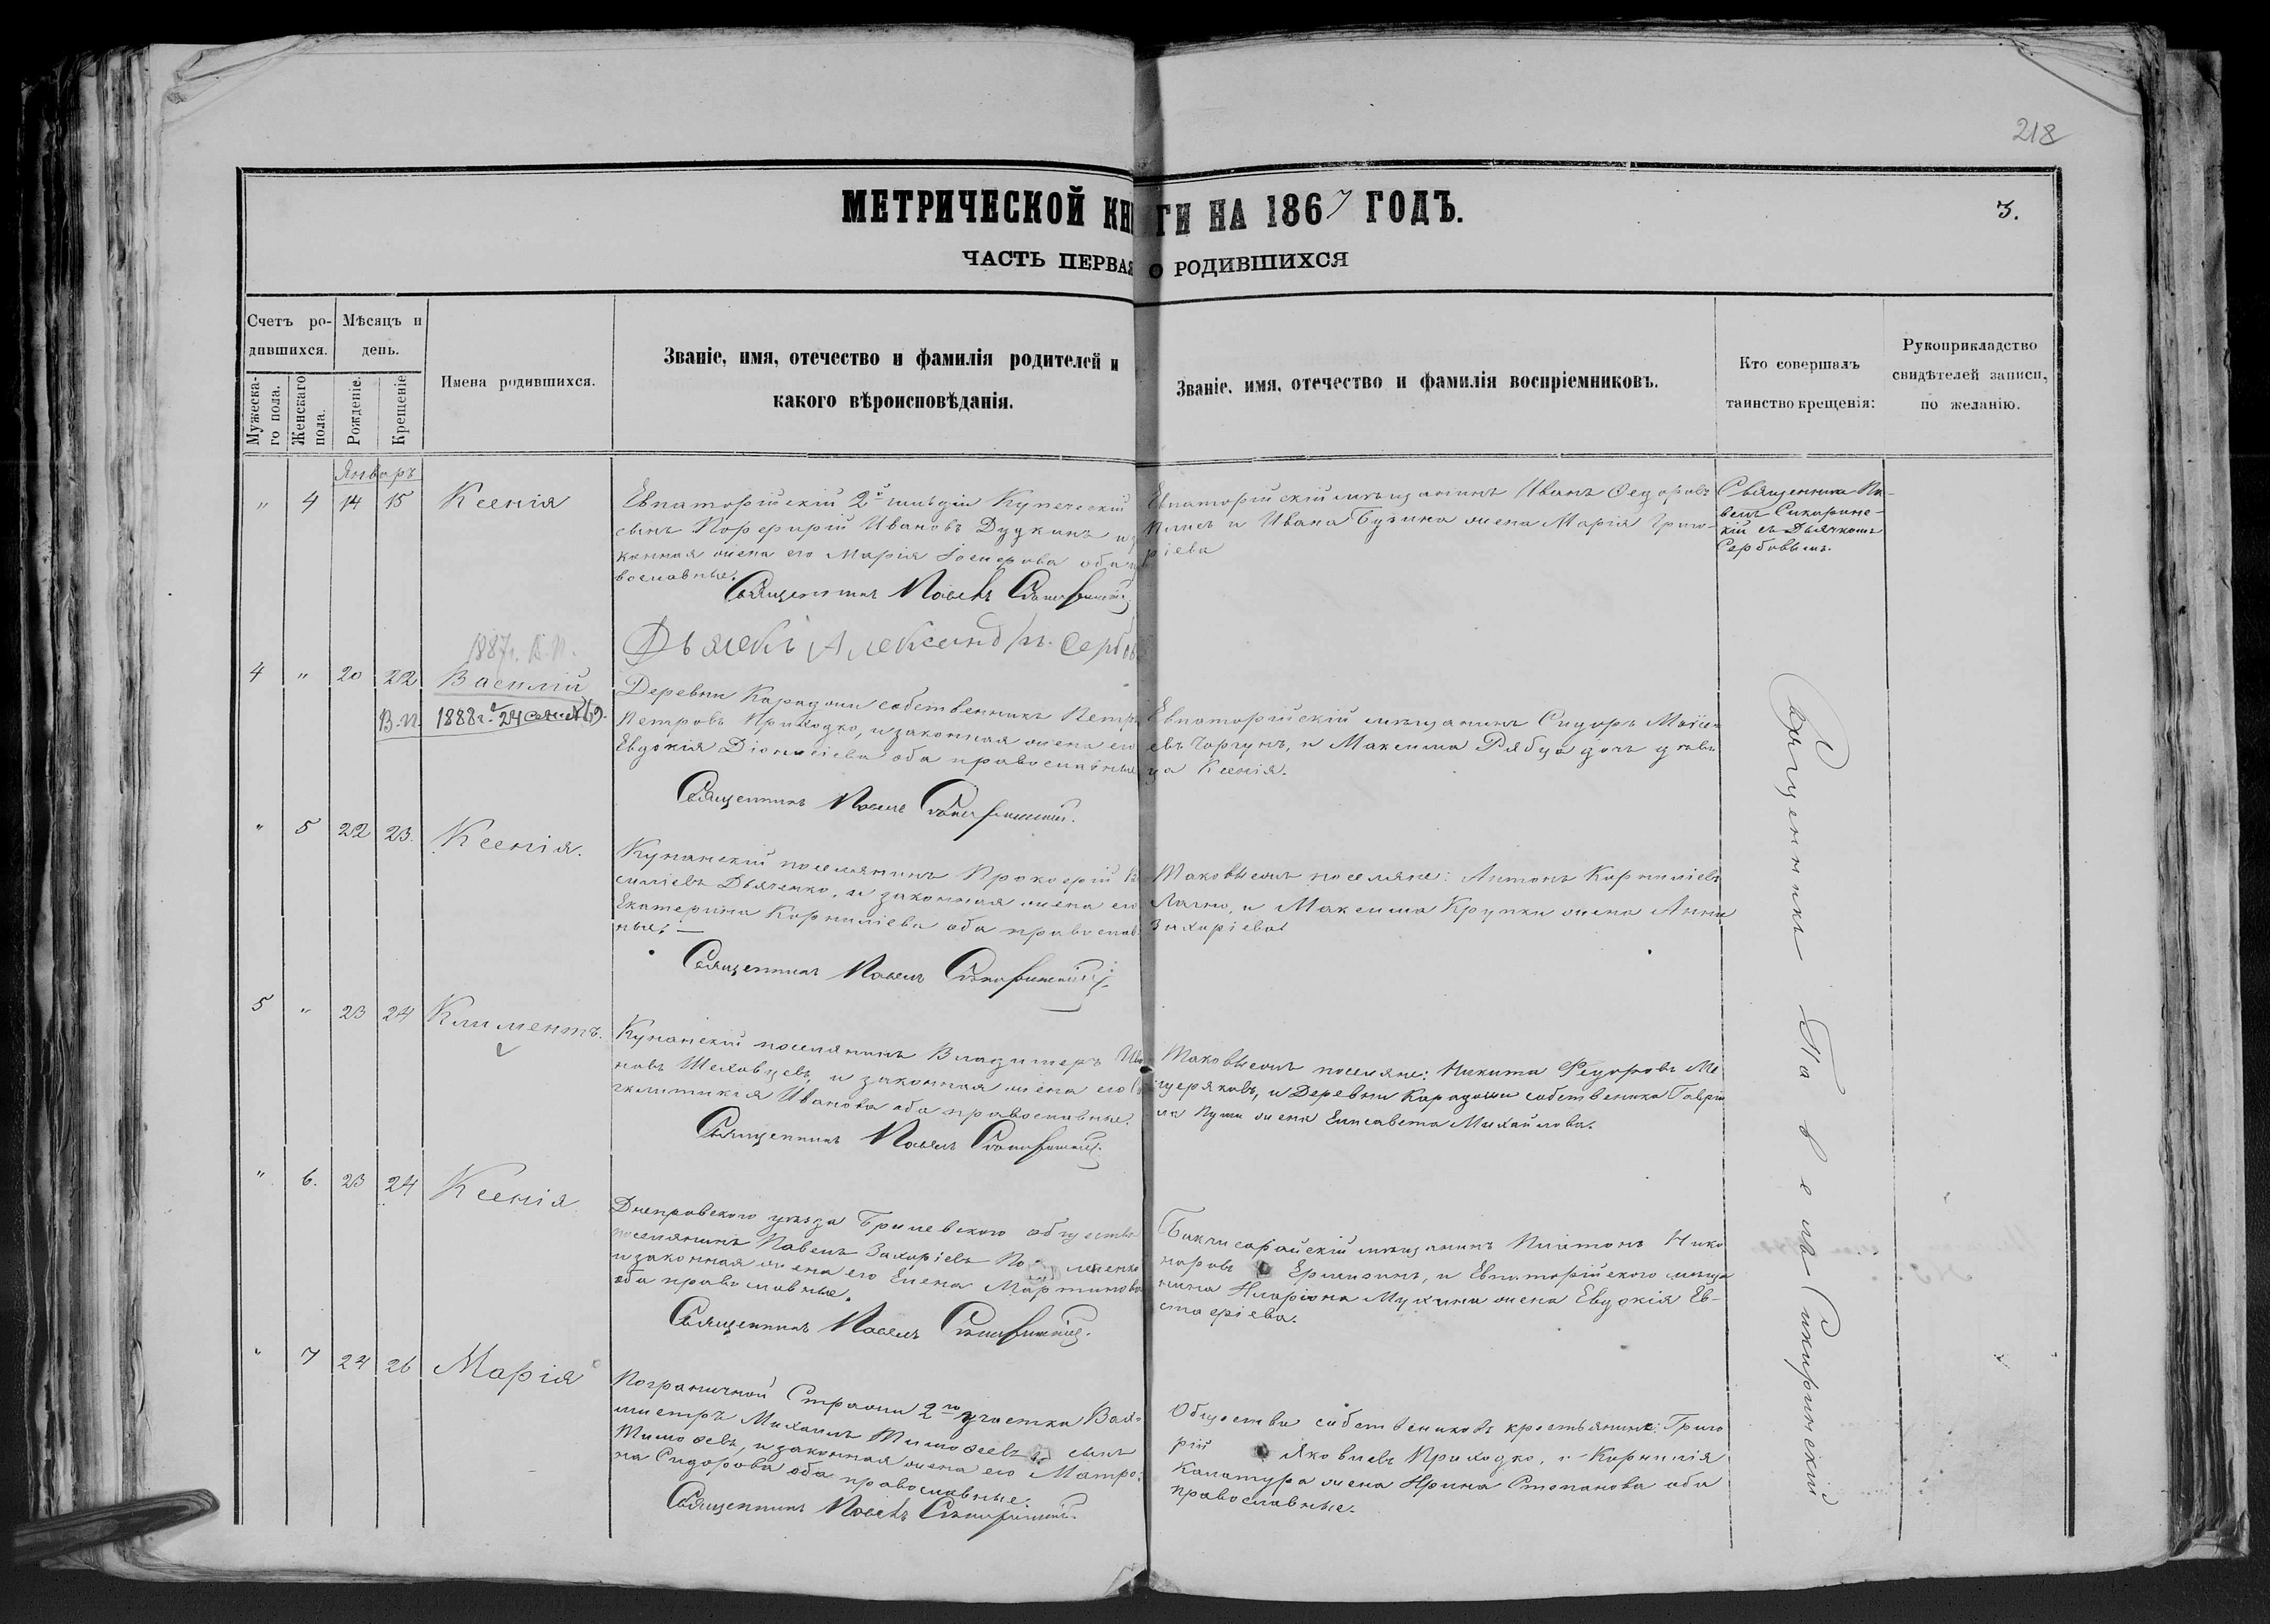 218
МЕТРИЧЕСКОЙ КНИГИ НА 1867 ГОДЪ.
3.
ЧАСТЬ ПЕРВАЯ О РОДИВШИХСЯ
Счетъ ро-
дившихся.
Мужеска-
го пола.
Женскаго
пола.
Мѣсяцъ и
день.
Рожденіе.
Крещеніе
Имена родившихся.
Званіе, имя, отечество и фамилія родителей и
какого вѣроисповѣданія.
Званіе, имя, отечество и фамилія воспріемниковъ.
Кто совершалъ
таинство крещенія:
Рукоприкладство
свидѣтелей записи,
по желанію.
Январь
" 4 14 15 Ксенія
Евпаторійскій 2й гильдіи Купеческій
сынъ Порфирій Ивановъ Дудкинъ и за
конная жена его Марія Іосифова оба пра
вославные.
Священникъ Павелъ
Дьячекъ Александръ Сербовъ
Евпаторійскій мѣщанинъ Иванъ Федоровъ
и Ивана жена Марія Григо-
ріева
Священникъ Па-
велъ Сикирин-
кій съ Дьячкомъ
Сербовымъ.
1887г. В.П.
4 " 20 22 Василій
В.П. 1888г. 24
Деревни Карадожи собственникъ Петръ
Петровъ Приходко, и законная жена его
Евдокія Діонисіева оба православные
Священникъ Павелъ
Евпаторійскій мѣщанинъ Сидоръ Моисе-
евъ Чоргунъ, и Максима Рябца дочь дѣви
ца Ксенія.
" 5 22 23. Ксенія.
Кунанскій поселянинъ Прокофій Ва
силіевъ Дьяченко, и законная жена его
Екатерина Корниліева оба православ
ные. —
Священникъ Павелъ
Таковыежъ поселяне: Антонъ Корниліевъ
и Максима Крупки жена Анна
Захаріева
5 " 23 24 Климентъ.
Кунанскій поселянинъ Владимеръ Ива
новъ Шеховцевъ, и законная жена его
Иванова оба православные.
Священникъ Павелъ
Таковыежъ поселяне: Никита Федоровъ Ме
щеряковъ, и Деревни Карадожи собственика Гаври
ла жена Елисавета Михайлова.
" 6. 23 24 Ксенія
Днепровскаго уѣзда Брилевскаго общества
поселянинъ Павелъ Захаріевъ
и законная жена его Елена Мартинова
оба православные.
Священникъ Павелъ
Бакчисарайскій мѣщанинъ Платонъ Нико
норовъ и Евпаторійскаго мѣща
нина Иларіона Мухина жена Евдокія Ев-
стафіева.
" 7 24 26 Марія
Пограничной Стражи 2го участка Вах-
мистръ Михаилъ Тимофеевъ сынъ
Тимофевъ, и законная жена его Матро-
на Сидорова оба православные.
Священникъ Павелъ
Общества собствениковъ крестьянинъ: Григо
рій Яковлевъ Приходко, и Корнилія
жена Ирина Степанова оба
православные.
Священникъ Павелъ Сикиринскій